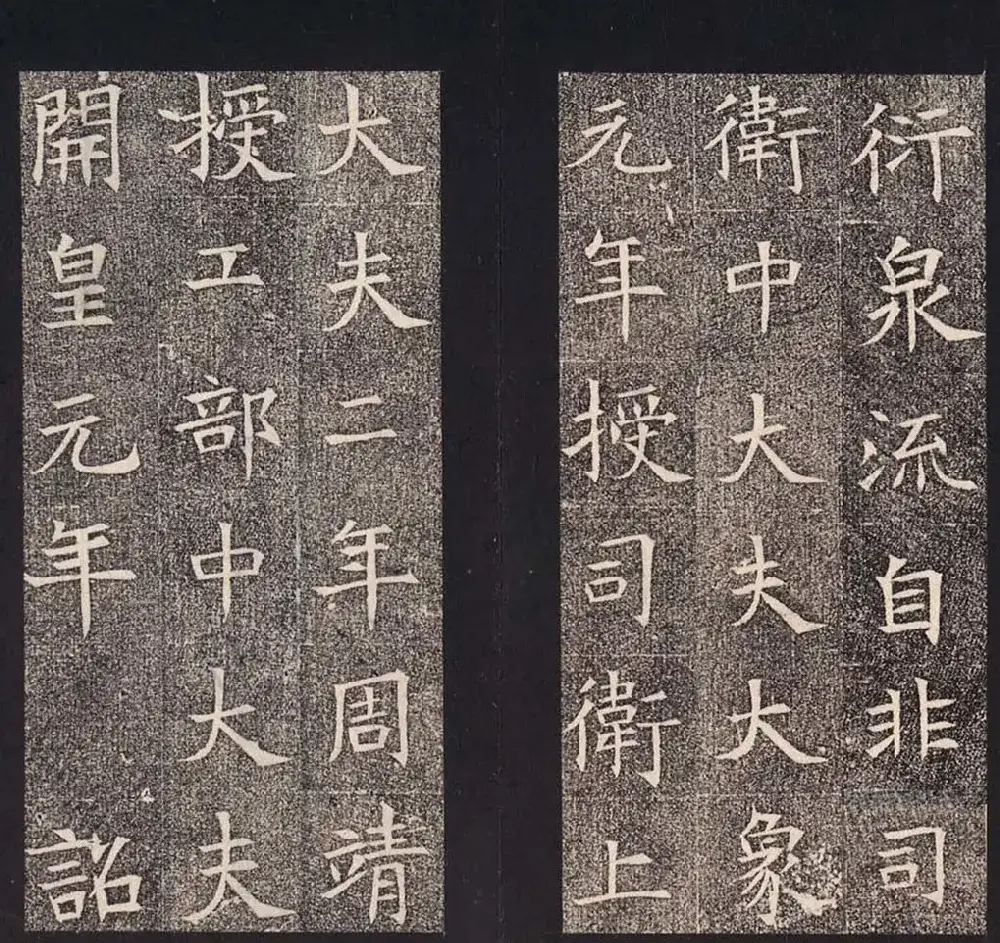 衍泉流自非司
衛中大夫大象
元年授司衛上
大夫二年周靖
授工部中大夫
開皇元年詔